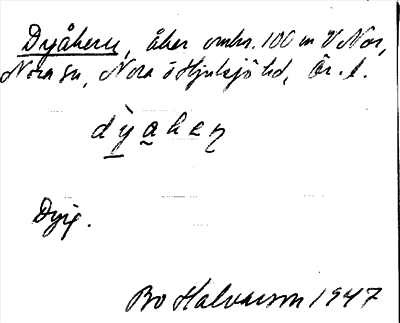 Dyåkern, åker omkr. 100 m V Nor,
Nora sn, Nora o Hjulsjö hd, Ör. l.
dỳ̠a̠ken
Dyig.
Bo Halvarson 1947